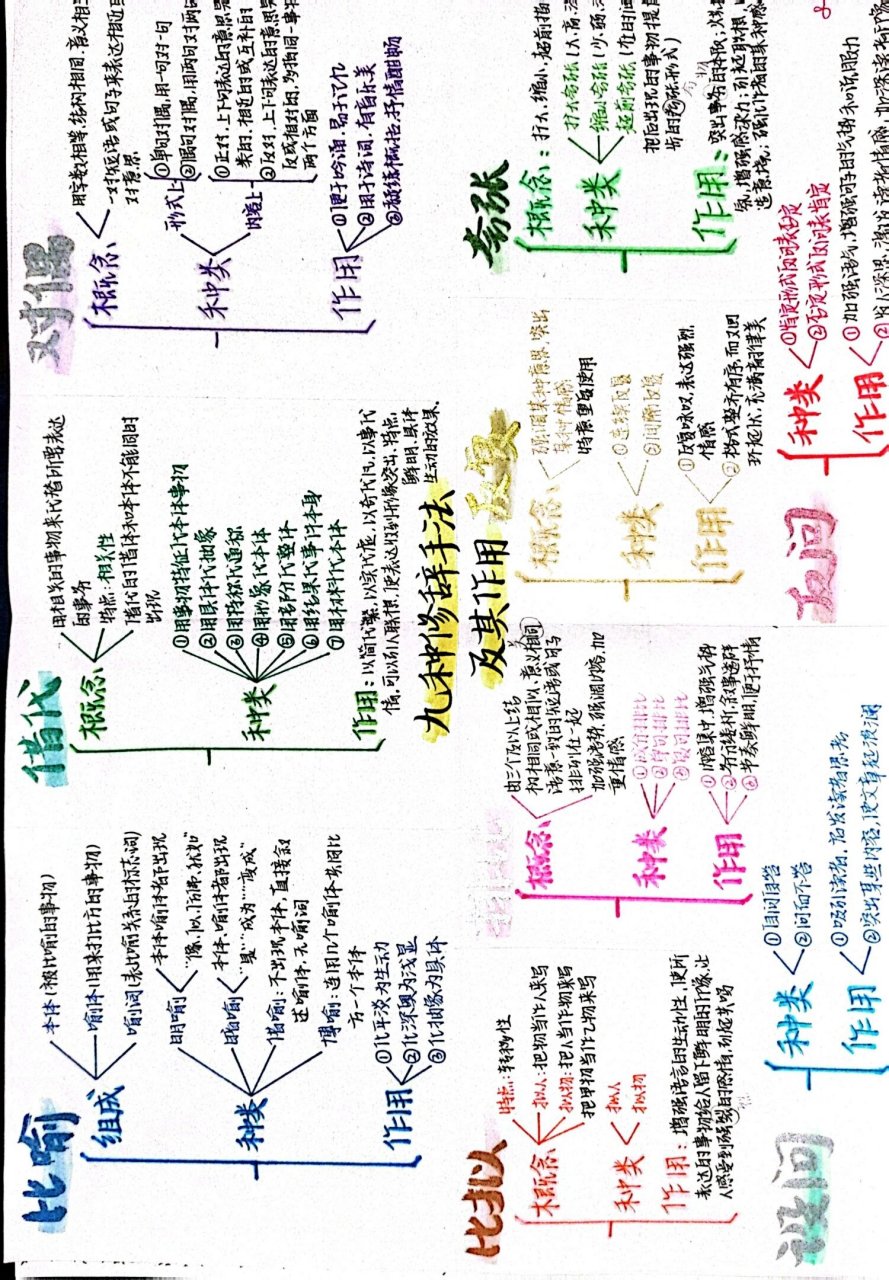 比喻
组成
本体(被比喻的事物)
喻体(用来打比方的事物)
喻词(表比喻关系的标志词)
种类
明喻
本体喻体都出现
“像、似、仿佛、犹如”
暗喻
本体、喻体都出现
“是”“成为”“变成”
借喻：不出现本体，直接叙
述喻体，无喻词
博喻：连用几个喻体共同比
方一个本体
作用
①化平淡为生动
②化深奥为浅显
③化抽象为具体
借代
概念
用相关的事物来代替所要表达
的事物
特点：相关性
借代的借体和本体不能同时
出现
种类
①用事物特征代本体事物
②用具体代抽象
③用特称代通称
④用形象代本体
⑤用部分代整体
⑥用结果代事件本身
⑦用材料代本体
作用：以简代繁，以实代虚，以奇代凡，以事代
情，可以引人联想，使表达收到形象突出、特点
鲜明、具体
生动的效果。
对偶
概念
用字数相等，结构相同，意义相
一对短语或句子来表达相近
对意思
种类
形式上
①单句对偶，用一句对一句
②偶句对偶，用两句对两句
内容上
①正对，上下句表达的意思是
类的，相近的或互补的
②反对，上下句表达的意思
反或相对的，为指同一事
两个方面
作用
①便于吟诵，易于记忆
②用于诗词，有音乐美
③凝练概括，抒情酣畅
九种修辞手法
及其作用
比拟
特点：转移性
概念
拟人：把物当作人来写
拟物：把人当作物来写
把甲物当作乙物来写
种类
拟人
拟物
作用：增强语言的生动性，使所
表达的事物给人留下鲜明的形象，让
人感受到强烈的感情，引起共鸣
概念
由三个及以上结
构相同或相似、意义相同
语意一致的短语或句子
排列在一起
加强语势，强调内容，加
重情感
种类
①成分排比
②单句排比
③复句排比
作用
①内容集中，增强气势
②分析透彻，叙事透辟
③节奏鲜明，便于抒情
反复
概念
强调某种意思，突出
某种情感
特意重复使用
种类
①连续反复
②间隔反复
作用
①反复咏叹，表达强烈
情感
②格式整齐有序，而又回
环起伏，充满音律美
夸张
概念：扩大、缩小、超前描
种类
扩大夸张(大、高、
缩小夸张(少、弱、
超前夸张(在时间
把后出现的事物提
步的夸张形式)
作用：突出事物的本质；烘
氛，增强感染力；引起联想，
造意境；强化作者的某种感
设问
种类
①自问自答
②问而不答
作用
①吸引读者，启发读者思考
②突出某些内容，使文章起波澜
反问
种类
①肯定形式反问表否定
②否定形式反问表肯定
作用
①加强语气，增强句子的气势和说服力
②发人深思，激发读者情感，加深读者印象